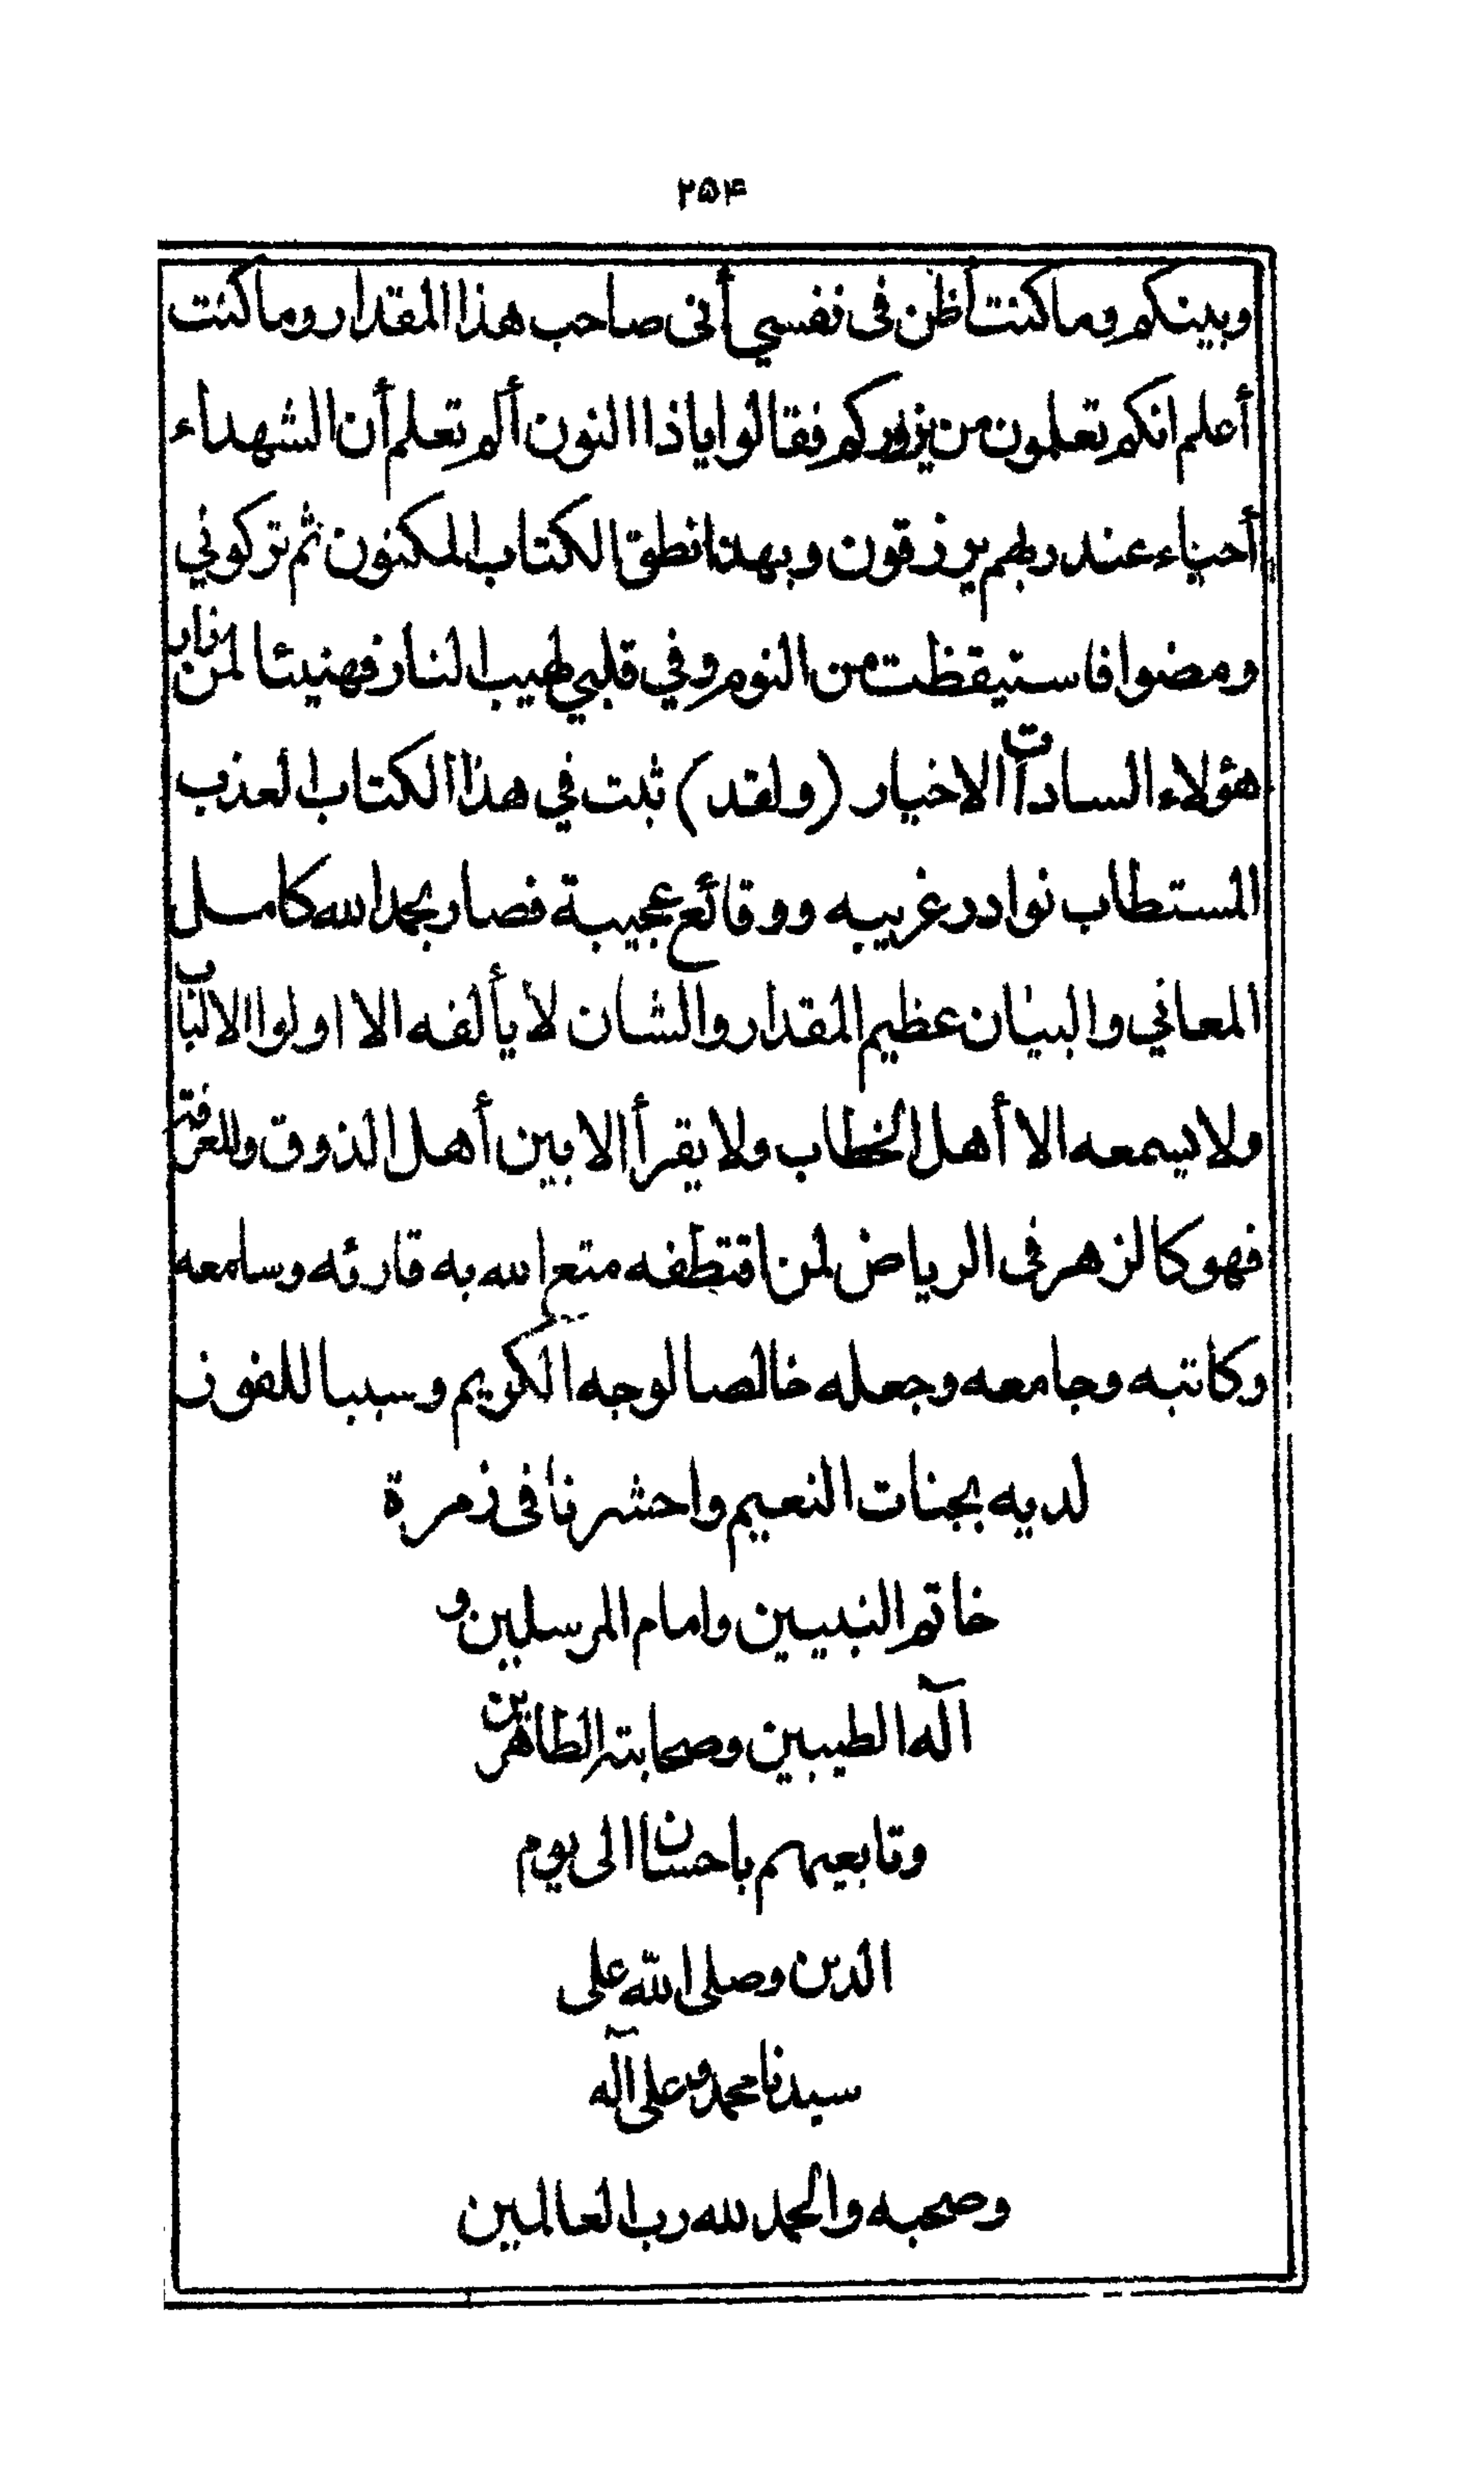 ۲۵۴
وبينكم وما كنت اظن فى نفسي أنى صاحب هذا المقدار وما كنت
أعلم انكم تعلمون من يزوركم فقالوا ياذا النون ألم تعلم أن الشهداء
أحياء عند ربهم يرزقون وبهذا نطق الكتاب المكنون ثم تركوني
ومضوا فاستيقظت من النوم وفي قلبي لهيب النار فهنيئا لمن زار
هؤلاء السادات الاخيار (ولقد) ثبت في هذا الكتاب العذب
المستطاب نوادر غريبه ووقائع عجيبة فصار بحمد الله كامل
المعاني والبيان عظيم المقدار والشان لا يألفه الا اولوا الالباب
ولا يسمعه الا أهل الخطاب ولا يقرأ الا بين أهل الذوق والمعرفة
فهو كالزهر فى الرياض لمن اقتطفه متع الله به قارئه وسامعه
وكاتبه وجامعه وجعله خالصا لوجه الكريم وسببا للفوز
لديه بجنات النعيم واحشرنا فى زمرة
خاتم النبيين وامام المرسلين و
آله الطيبين وصحابته الطاهرين
وتابعيهم باحسان الى يوم
الدين وصلى الله على
سيدنا محمد وعلى آله
وصحبه والحمد لله رب العالمين